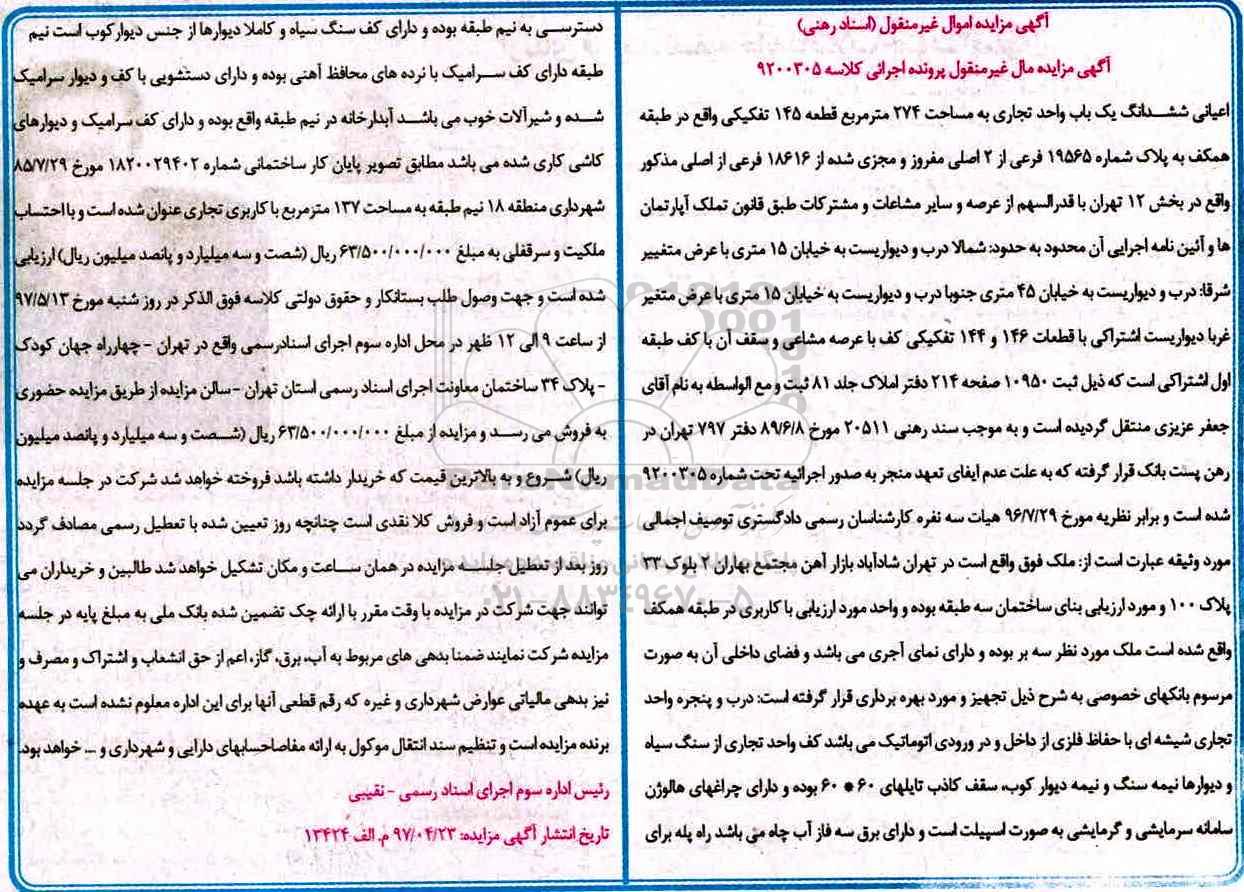 آگهی مزایده اموال غیرمنقول (اسناد رهنی)
آگهی مزایده مال غیرمنقول پرونده اجرائی کلاسه ۹۲۰۰۳۰۵
اعیانی ششدانگ یک باب واحد تجاری به مساحت ۲۷۴ مترمربع قطعه ۱۴۵ تفکیکی واقع در طبقه
همکف به پلاک شماره ۱۹۵۶۵ فرعی از ۲ اصلی مفروز و مجزی شده از ۱۸۶۱۶ فرعی از اصلی مذکور
واقع در بخش ۱۲ تهران با قدرالسهم از عرصه و سایر مشاعات و مشترکات طبق قانون تملک آپارتمان
ها و آئین نامه اجرایی آن محدود به حدود: شمالا درب و دیواریست به خیابان ۱۵ متری با عرض متغییر
شرقا: درب و دیواریست به خیابان ۴۵ متری جنوبا درب و دیواریست به خیابان ۱۵ متری با عرض متغیر
غربا دیواریست اشتراکی با قطعات ۱۴۶ و ۱۴۴ تفکیکی کف با عرصه مشاعی و سقف آن با کف طبقه
اول اشتراکی است که ذیل ثبت ۱۰۹۵۰ صفحه ۲۱۴ دفتر املاک جلد ۸۱ ثبت و مع الواسطه به نام آقای
جعفر عزیزی منتقل گردیده است و به موجب سند رهنی ۲۰۵۱۱ مورخ ۸۹/۶/۸ دفتر ۷۹۷ تهران در
رهن پست بانک قرار گرفته که به علت عدم ایفای تعهد منجر به صدور اجرائیه تحت شماره ۹۲۰۰۳۰۵
شده است و برابر نظریه مورخ ۹۶/۷/۲۹ هیات سه نفره کارشناسان رسمی دادگستری توصیف اجمالی
مورد وثیقه عبارت است از: ملک فوق واقع است در تهران شادآباد بازار آهن مجتمع بهاران ۲ بلوک ۳۳
پلاک ۱۰۰ و مورد ارزیابی بنای ساختمان سه طبقه بوده و واحد مورد ارزیابی با کاربری در طبقه همکف
واقع شده است ملک مورد نظر سه بر بوده و دارای نمای آجری می باشد و فضای داخلی آن به صورت
مرسوم بانکهای خصوصی به شرح ذیل تجهیز و مورد بهره برداری قرار گرفته است: درب و پنجره واحد
تجاری شیشه ای با حفاظ فلزی از داخل و در ورودی اتوماتیک می باشد کف واحد تجاری از سنگ سیاه
و دیوارها نیمه سنگ و نیمه دیوار کوب، سقف کاذب تایلهای ۶۰ * ۶۰ بوده و دارای چراغهای هالوژن
سامانه سرمایشی و گرمایشی به صورت اسپیلت است و دارای برق سه فاز آب چاه می باشد راه پله برای
دسترسی به نیم طبقه بوده و دارای کف سنگ سیاه و کاملا دیوارها از جنس دیوارکوب است نیم
طبقه دارای کف سرامیک با نرده های محافظ آهنی بوده و دارای دستشویی با کف و دیوار سرامیک
شده و شیرآلات خوب می باشد آبدارخانه در نیم طبقه واقع بوده و دارای کف سرامیک و دیوارهای
کاشی کاری شده می باشد مطابق تصویر پایان کار ساختمانی شماره ۱۸۲۰۰۲۹۴۰۲ مورخ ۸۵/۷/۲۹
شهرداری منطقه ۱۸ نیم طبقه به مساحت ۱۳۷ مترمربع با کاربری تجاری عنوان شده است و با احتساب
ملکیت و سرقفلی به مبلغ ۶۳/۵۰۰/۰۰۰/۰۰۰ ریال (شصت و سه میلیارد و پانصد میلیون ریال) ارزیابی
شده است و جهت وصول طلب بستانکار و حقوق دولتی کلاسه فوق الذکر در روز شنبه مورخ ۹۷/۵/۱۳
از ساعت ۹ الی ۱۲ ظهر در محل اداره سوم اجرای اسنادرسمی واقع در تهران - چهارراه جهان کودک
- پلاک ۳۴ ساختمان معاونت اجرای اسناد رسمی استان تهران - سالن مزایده از طریق مزایده حضوری
به فروش می رسد و مزایده از مبلغ ۶۳/۵۰۰/۰۰۰/۰۰۰ ریال (شصت و سه میلیارد و پانصد میلیون
ریال) شروع و به بالاترین قیمت که خریدار داشته باشد فروخته خواهد شد شرکت در جلسه مزایده
برای عموم آزاد است و فروش کلا نقدی است چنانچه روز تعیین شده با تعطیل رسمی مصادف گردد
روز بعد از تعطیل جلسه مزایده در همان ساعت و مکان تشکیل خواهد شد طالبین و خریداران می
توانند جهت شرکت در مزایده با وقت مقرر با ارائه چک تضمین شده بانک ملی به مبلغ پایه در جلسه
مزایده شرکت نمایند ضمنا بدهی های مربوط به آب، برق، گاز، اعم از حق انشعاب و اشتراک و مصرف و
نیز بدهی مالیاتی عوارض شهرداری و غیره که رقم قطعی آنها برای این اداره معلوم نشده است به عهده
برنده مزایده است و تنظیم سند انتقال موکول به ارائه مفاصاحسابهای دارایی و شهرداری و ... خواهد بود.
رئیس اداره سوم اجرای اسناد رسمی - نقیبی
تاریخ انتشار آگهی مزایده: ۹۷/۰۴/۲۳ م. الف ۱۳۴۲۴
۰۲۱-۸۸۳۴۹۶۷۰-۵